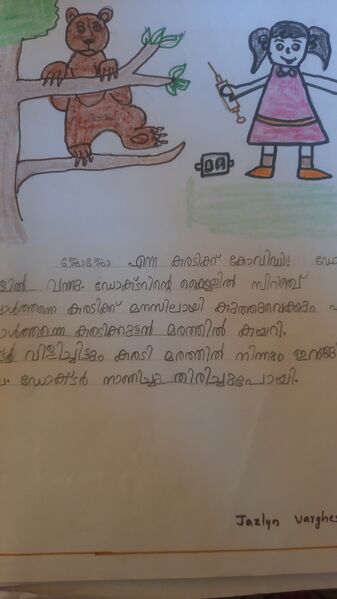 ജോജോ എന്ന കരടിക്ക് കോവിഡ്! ഡോ
വന്നു. ഡോക്ടറിന്റെ കൈയ്യിൽ സിറിഞ്ച്
കരടിക്ക് മനസിലായി കുത്തുവെക്കും
കരടിക്കുട്ടൻ മരത്തിൽ കയറി.
വിളിച്ചിട്ടും കരടി മരത്തിൽ നിന്നും ഇറങ്ങി
ഡോക്ടർ നാണിച്ചു തിരിച്ചുപോയി.
Jazlyn Varghes